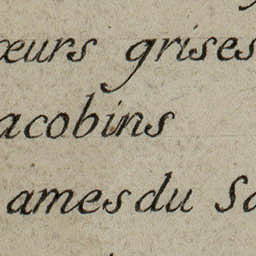 œurs grises
acobins
ames du Sa